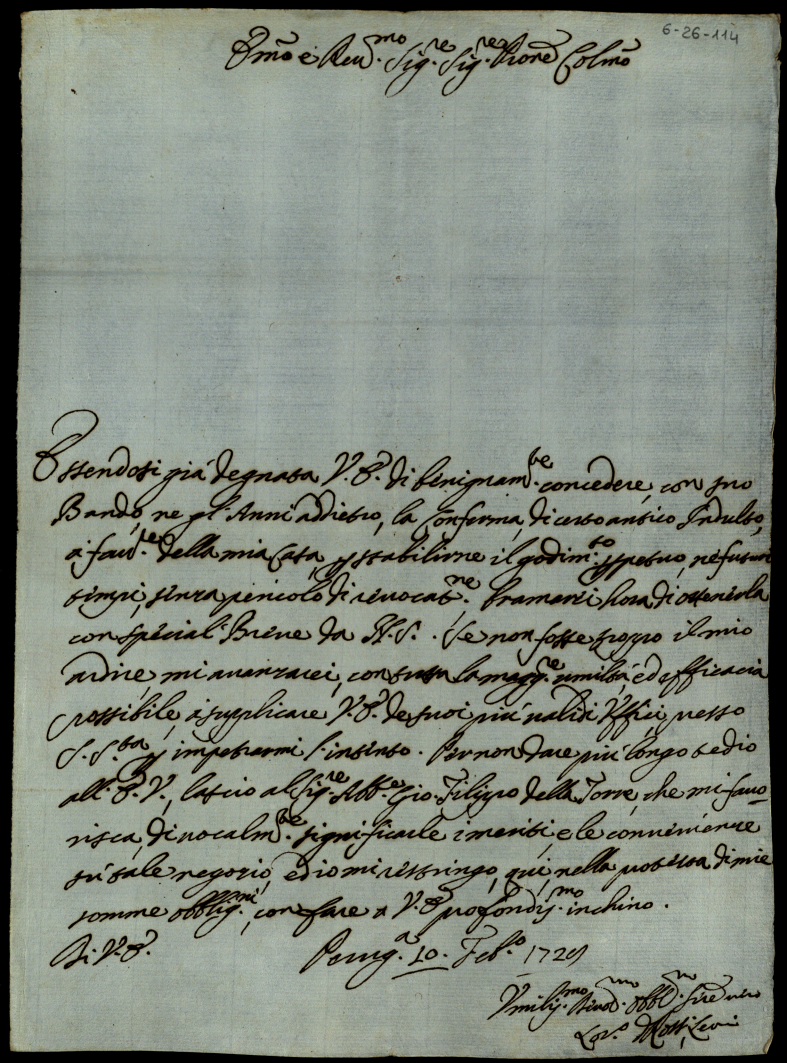 6-26-114
Emõ e Reu.mo Sig.re Sig.re Prone Colmõ
Essendosi già degnata V.E. di benignam.te concedere, con suo
Bando, ne gl'Anni addietro, la Conferma, di certo antico Indulto,
a fau.re della mia Casa, stabilirne il godim.to ppetuo, ne futuri
tempi, senza pericolo di reuocat.ne bramerei hora di ottenerla
con special Breue da N.S. . Se non fosse troppo il mio
ardire, mi auanzarei, con tutta la magg.re umiltà, ed efficacia
possibile, à supplicare V.E. de suoi più ualidi Uffici presso
S. S.tà p impetrarmi l'intento. Per non dare più longo tedio
all'E.V., lascio al Sig.re Abb.e Gio. Filippo della Torre, che mi fauo-
risca, di uocalm.te significarle i meriti, e le conuenienze
sù tale negozio, ed io mi restringo, quì, nella protesta di mie
somme obblig.ni, con fare a V.E. profondis.mo inchino.
Di V.E. Perug.a 10. Feb.o 1729
Vmilis.mo Diuot.mo obbl.mo Sire uero